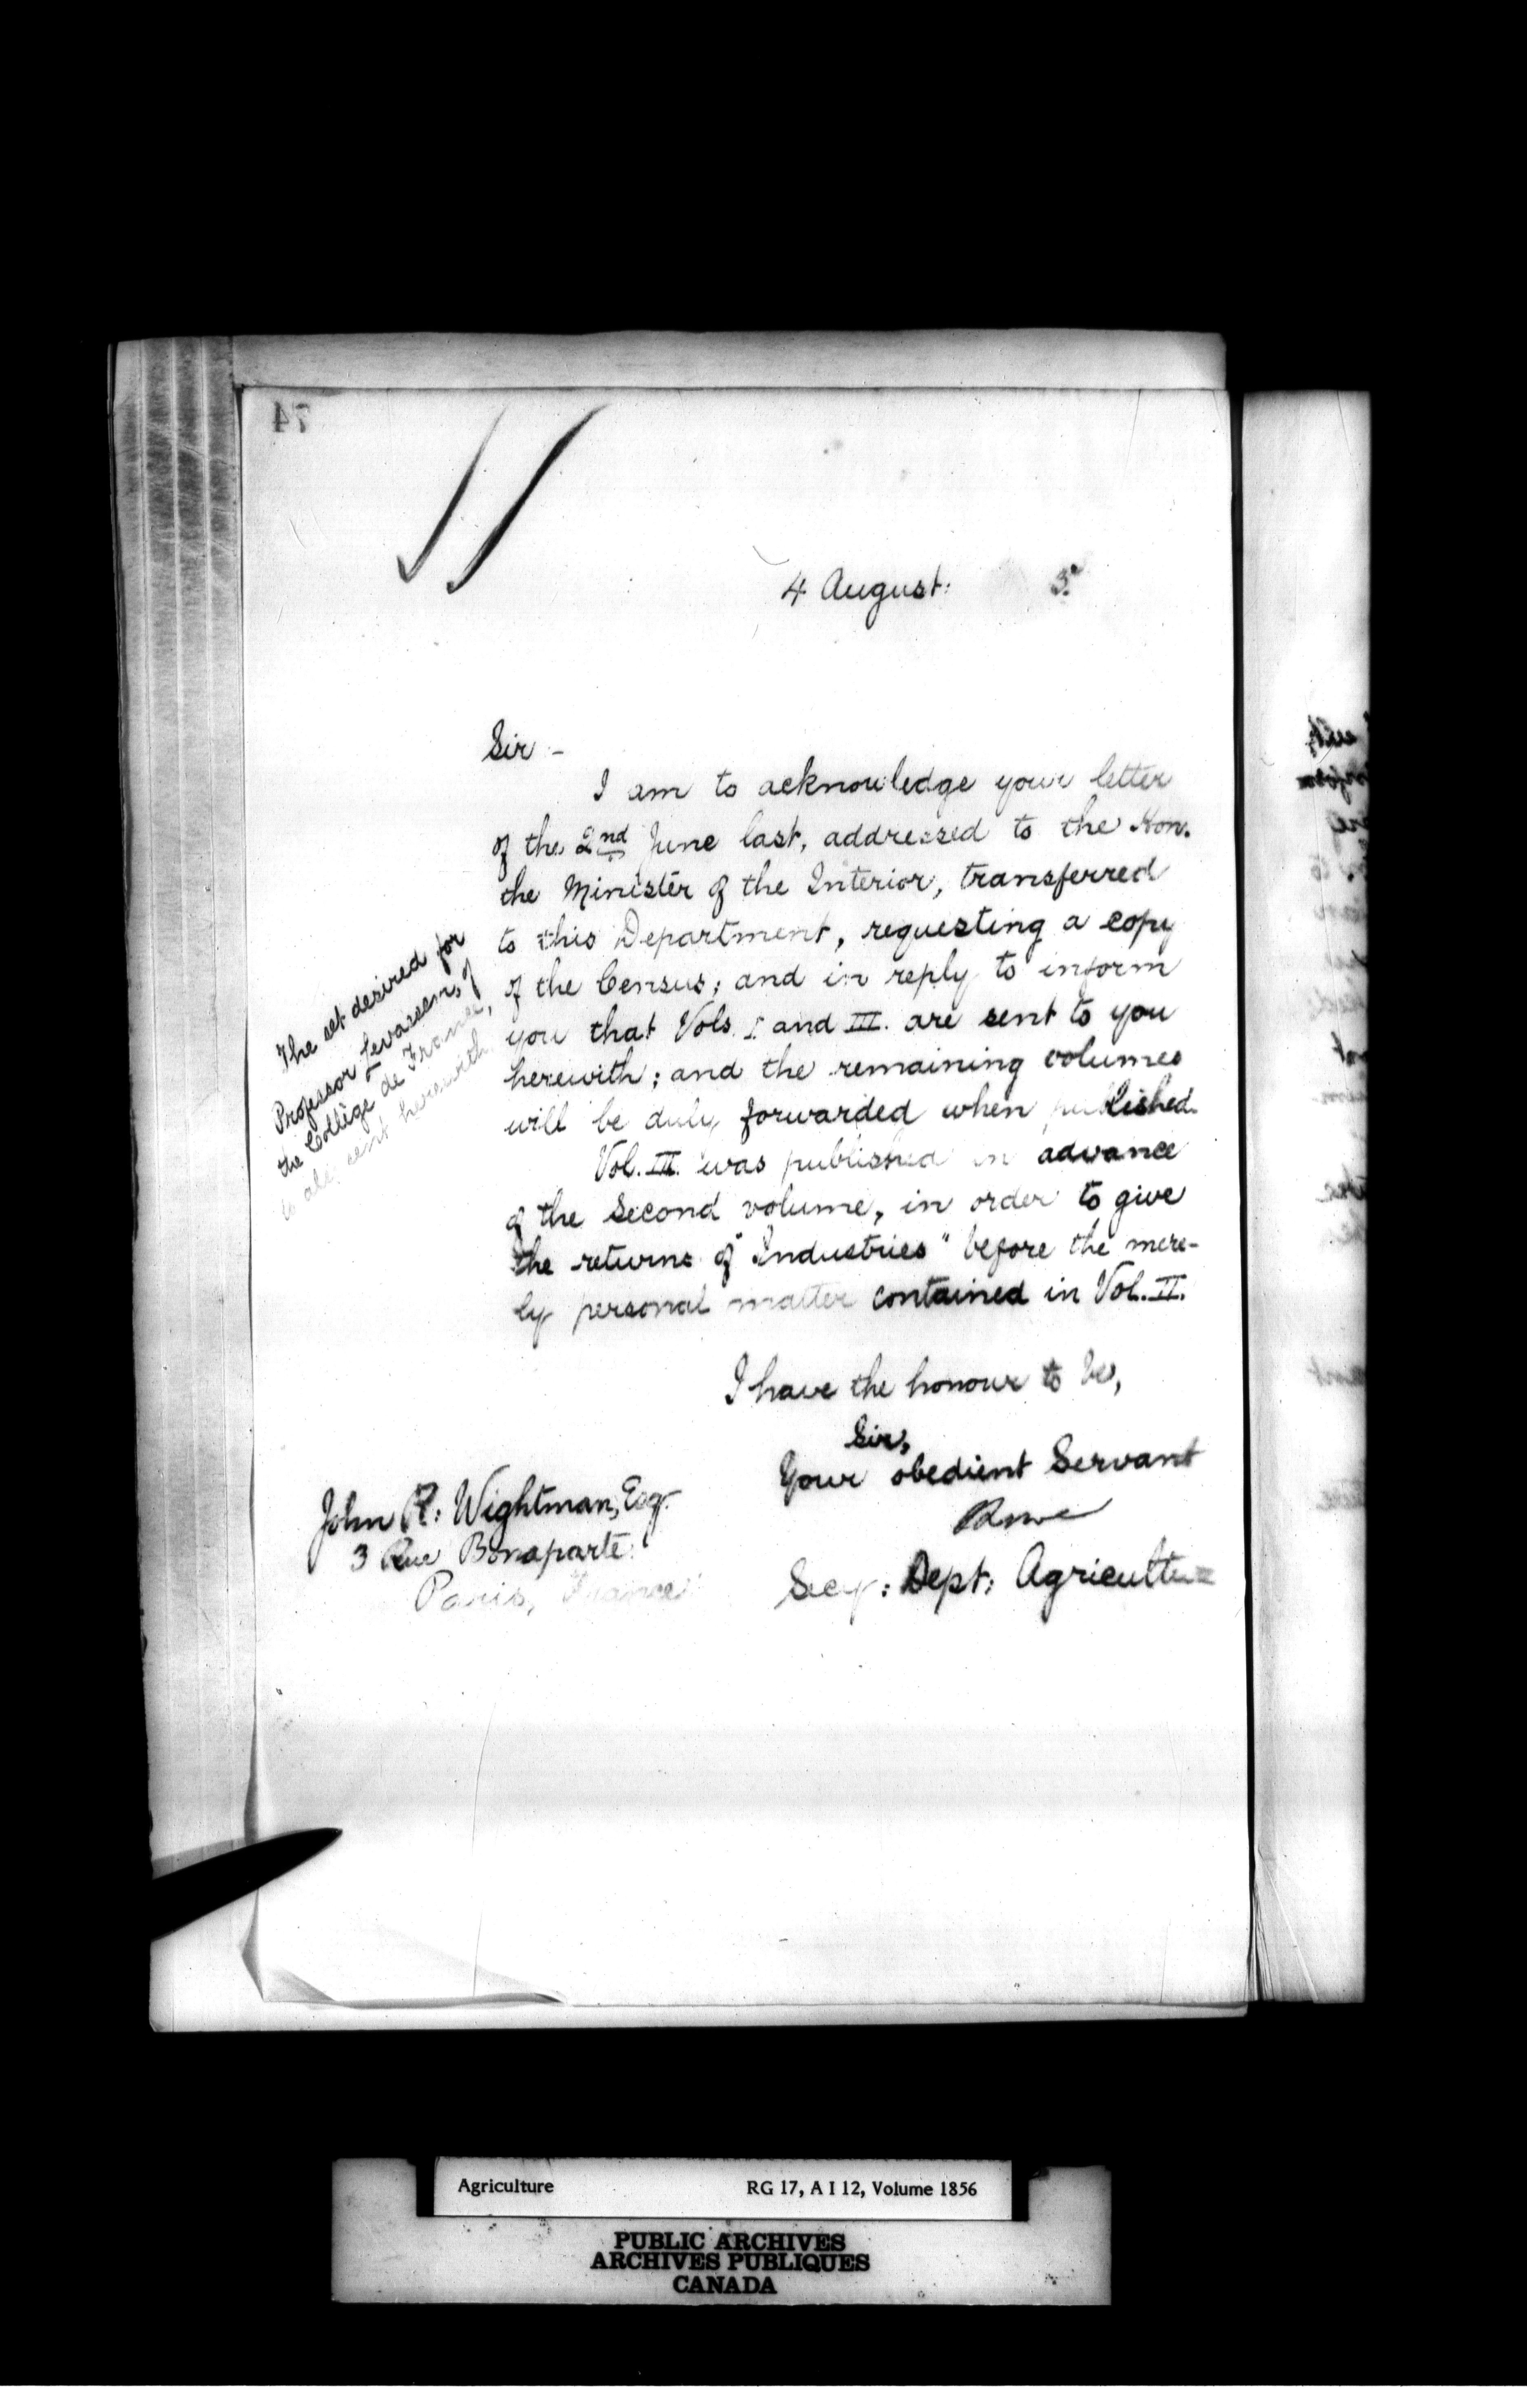 74
4 August: 3.
Sir -
I am to acknowledge your letter
of the 2nd June last, addressed to the Hon.
the Minister of the Interior, transferred
to this Department, requesting a copy
of the Census; and in reply to inform
you that Vols. I. and III. are sent to you
herewith; and the remaining volumes
will be duly forwarded when published.
Vol. III. was published in advance
of the Second volume, in order to give
the returns of "Industries" before the mere-
ly personal matter contained in Vol. II.
The set desired for
Professor Levasseur, of
the Collége de France,
is also sent herewith.
I have the honour to be,
Sir,
Your obedient Servant
Secy: Dept: Agriculture
John R: Wightman, Esq.
3 Rue Bonaparte
Paris, France
Agriculture RG 17, A I 12, Volume 1856
PUBLIC ARCHIVES
ARCHIVES PUBLIQUES
CANADA